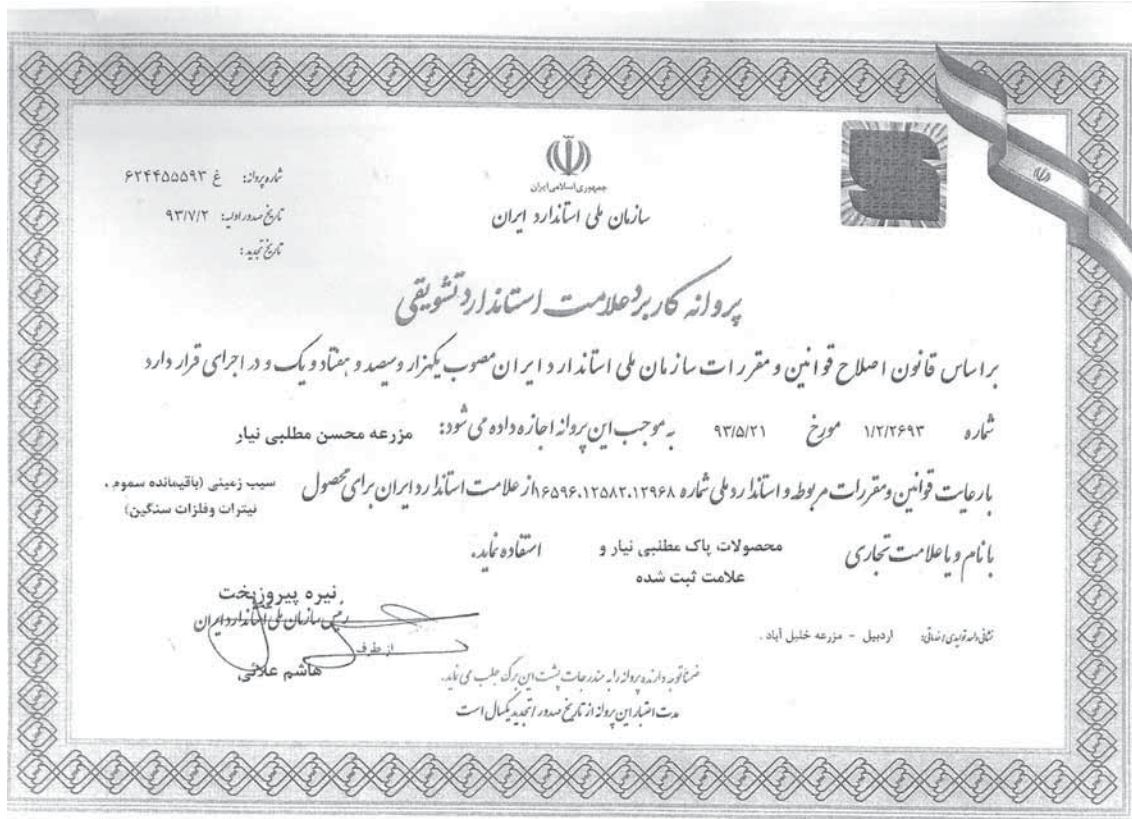 جمهوری اسلامی ایران
سازمان ملی استاندارد ایران
شماره پروانه: غ ۶۲۴۴۵۵۵۹۳
تاریخ صدور اولیه: ۹۳/۷/۲
تاریخ تجدید:
پروانه کاربرد علامت استاندارد تشویقی
بر اساس قانون اصلاح قوانین و مقررات سازمان ملی استاندارد ایران مصوب یکهزار و سیصد و هفتاد و یک و در اجرای قرار دارد
شماره ۱/۲/۲۶۹۳ مورخ ۹۳/۵/۲۱ به موجب این پروانه اجازه داده می شود: مزرعه محسن مطلبی نیار
با رعایت قوانین و مقررات مربوطه و استاندارد ملی شماره ۱۶۵۹۶،۱۲۵۸۲،۱۲۹۶۸ از علامت استاندارد ایران برای محصول سیب زمینی (باقیمانده سموم،
نیترات وفلزات سنگین)
با نام و یا علامت تجاری محصولات پاک مطلبی نیار و استفاده نماید.
علامت ثبت شده
نیره پیروزبخت
رئیس سازمان ملی استاندارد ایران
از طرف
هاشم علائی
نشانی واحد تولیدی / خدماتی: اردبیل - مزرعه خلیل آباد .
ضمناً توجه دارنده پروانه را به مندرجات پشت این برگ جلب می نماید.
مدت اعتبار این پروانه از تاریخ صدور / تجدید یکسال است